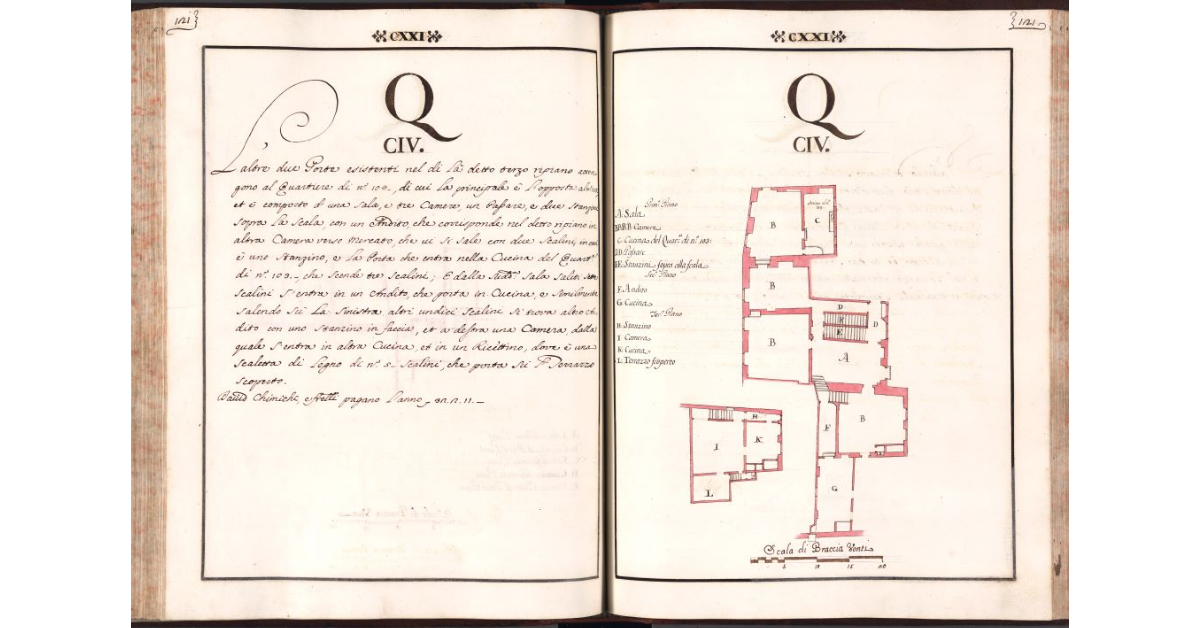 121
CXXI
Q
CIV.
L'altre due Porte esistenti nel di là detto terzo ripiano
gono al Quartiere di n.º 102., di cui la principale è l'opposta
et è composto d'una Sala, e tre Camere, un Passare, e due Stanzini
sopra la Scala, con un Andito, che corrisponde nel detto ripiano in
altra Camera verso Mercato, che vi si sale con due Scalini, in cui
è uno Stanzino, e la Porta che entra nella Cucina del Quart.
di n.º 103., che scende tre Scalini; E dalla Sala saliti
Scalini s'entra in un Andito, che porta in Cucina, e similmente
Salendo Su La Sinistra altri undici Scalini si trova altro
dito con uno Stanzino in faccia, et a destra una Camera, dalla
quale s'entra in altra Cucina, et in un Ricettino, dove è una
Scaletta di Legno di n.º 5. Scalini, che porta Sul Terrazzo
scoperto.
pagano l'anno
121
CXXI
Q
CIV.
Prim.º Piano
A. Sala
BBBB Camere
C. Cucina del Quar.e di n.º 103.
DD Passare
EE Stanzini sopra alla scala
Sec.º Piano
F. Andito
G. Cucina
Ter.º Piano
H. Stanzino
I. Camera
K. Cucina
L. Terrazzo scoperto
B
C
B
D
E
D
B
E
A
H
I
K
F
B
L
G
Scala di Braccia Venti
5 10 15 20